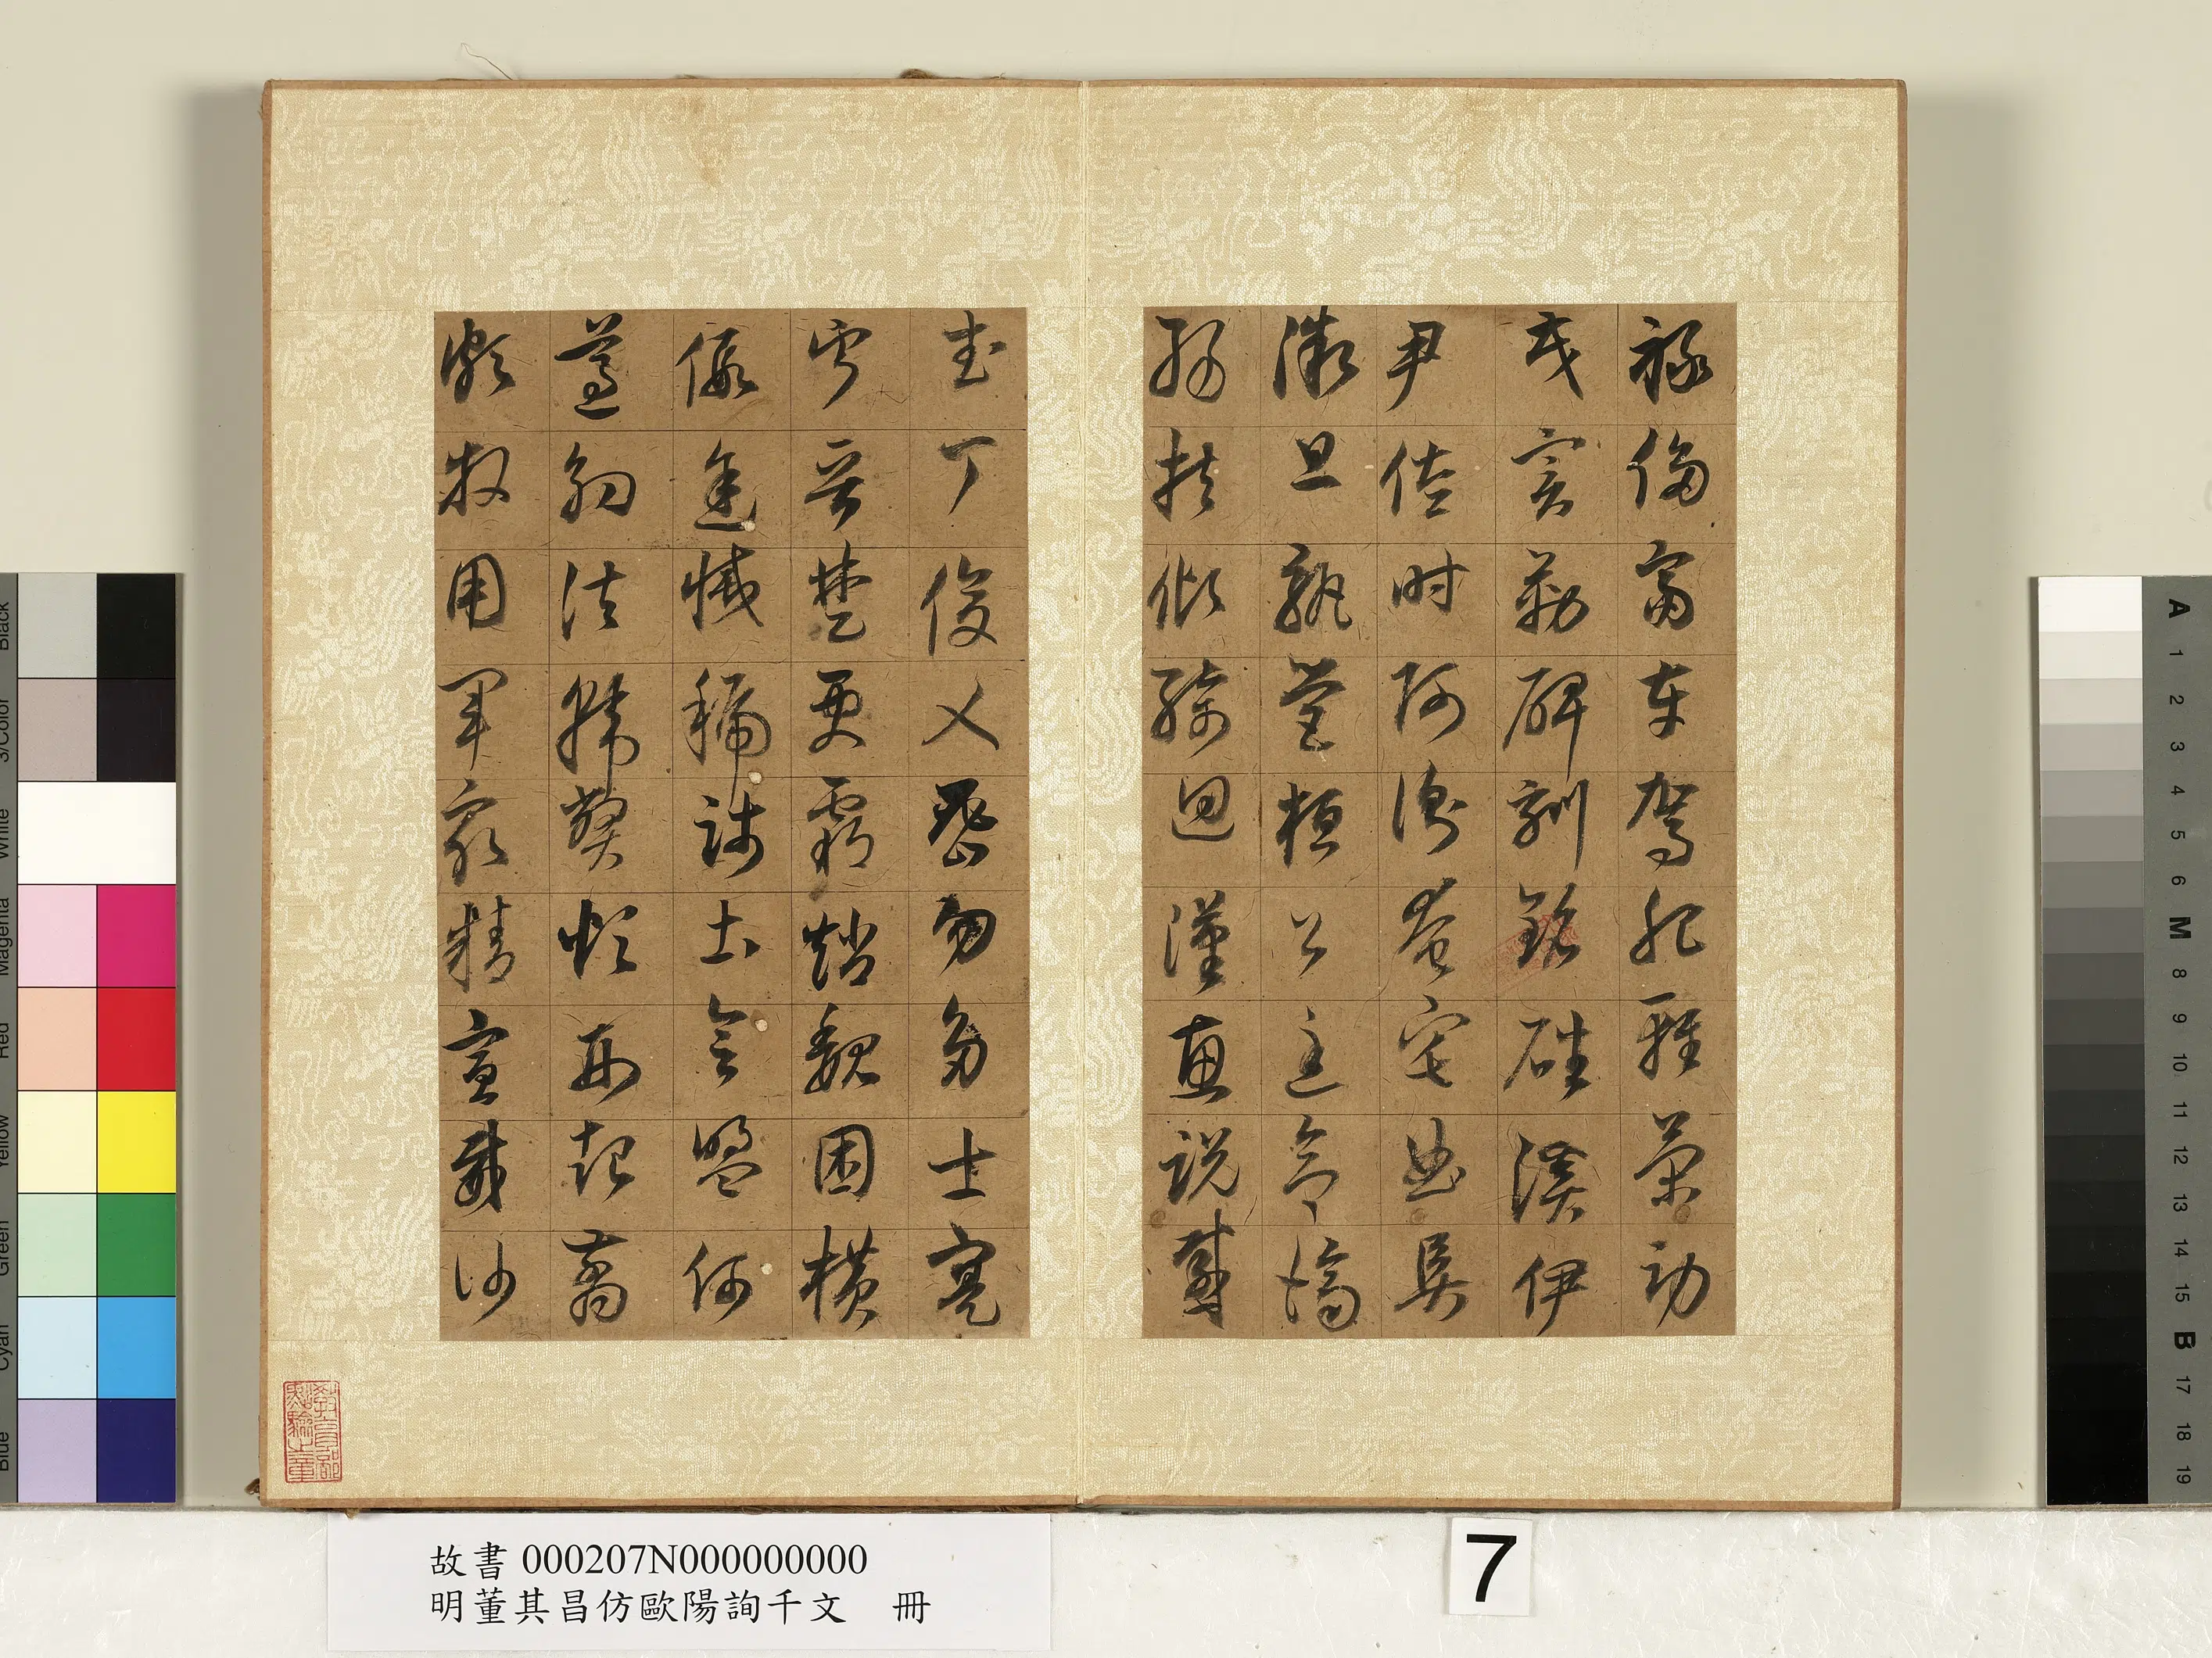 祿侈富車駕肥輕策功
茂實勒碑刻銘磻溪伊
尹佐時阿衡奄宅曲阜
微旦孰營桓公匡合濟
弱扶傾綺迴漢惠說感
武丁俊乂密勿多士寔
寧晉楚更霸趙魏困橫
假途滅虢踐土會盟何
遵約法韓弊煩刑起翦
頗牧用軍最精宣威沙
教育部
點驗之章
故書 000207N000000000
明董其昌仿歐陽詢千文 冊
7
Black
3/Color
White
Magenta
Red
Yellow
Green
Cyan
Blue
A
1
2
3
4
5
6
M
8
9
10
11
12
13
14
15
B
17
18
19